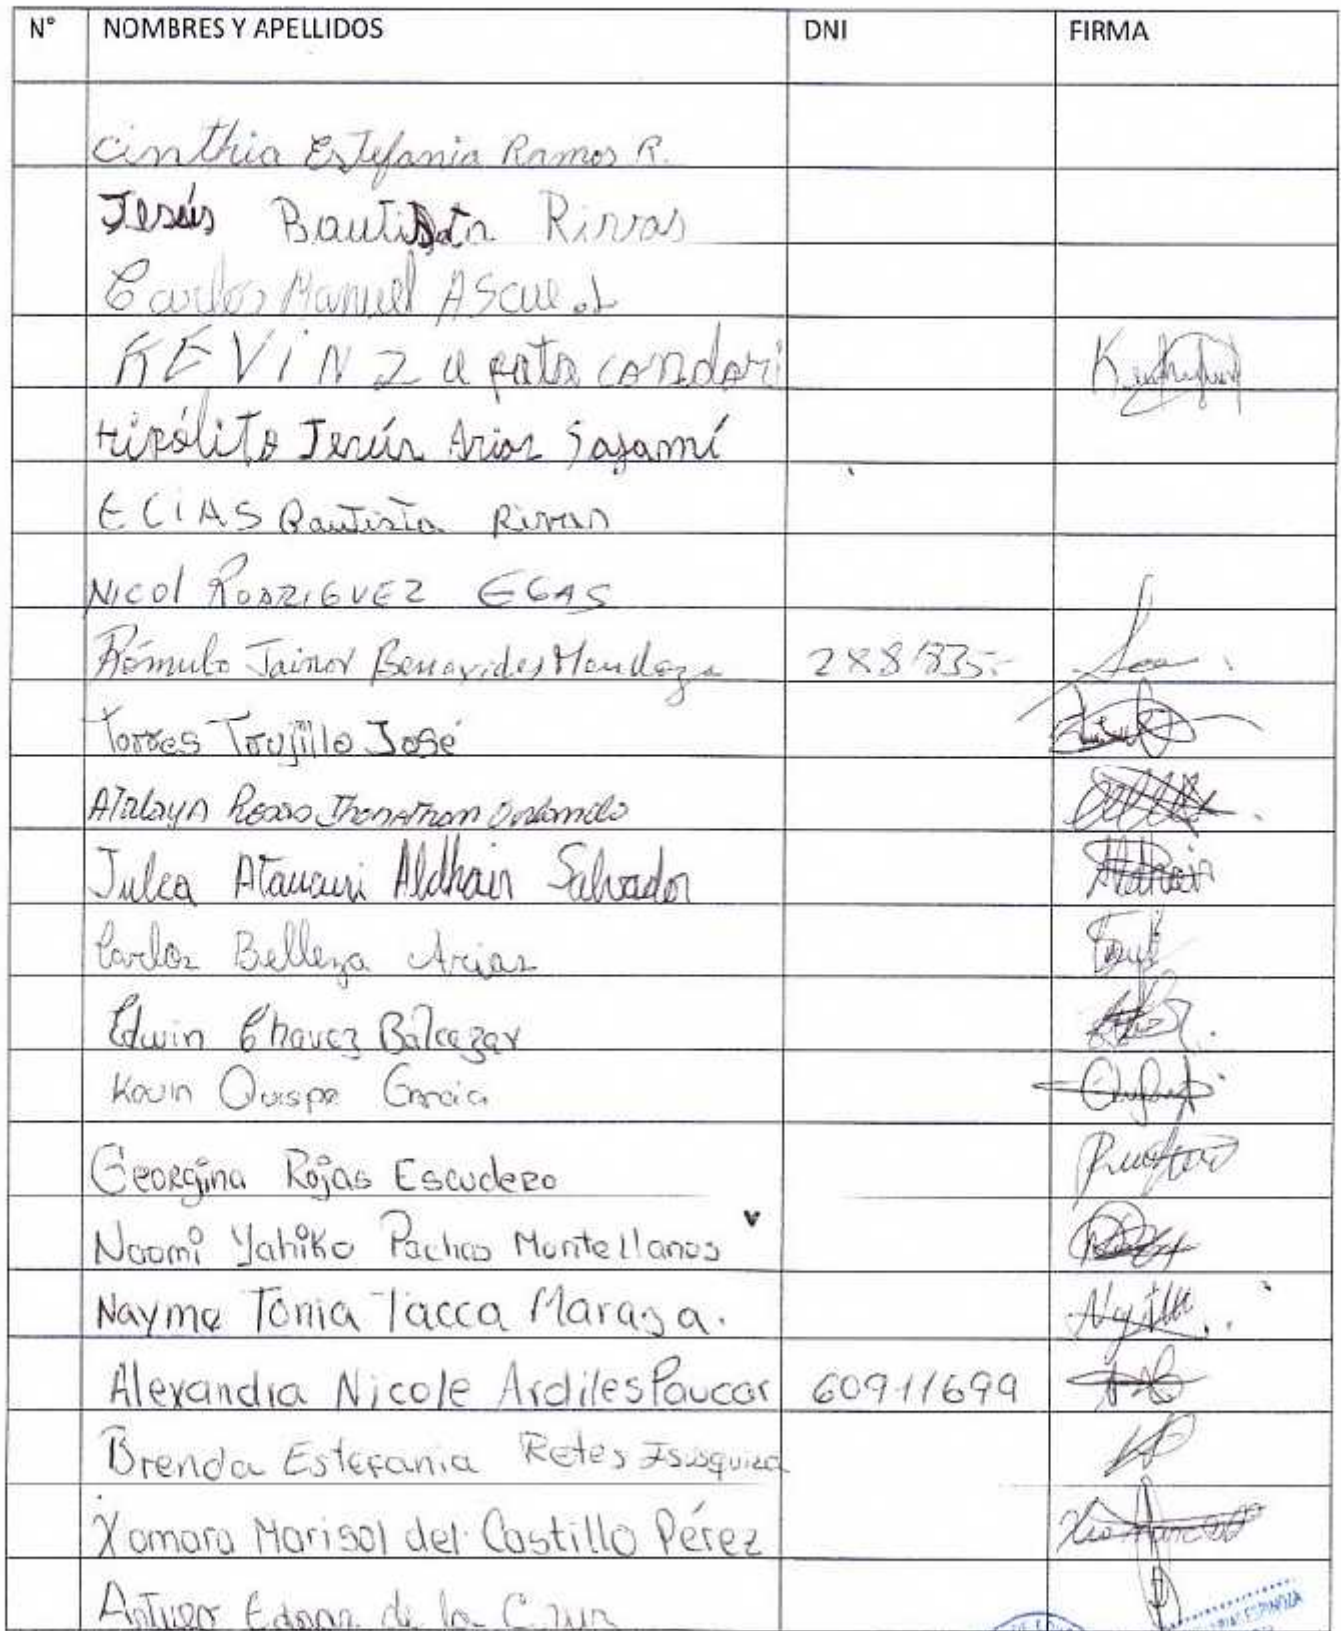 N° NOMBRES Y APELLIDOS DNI FIRMA
Cinthia Estefania Ramos R.
Jesús Bautista Rivas
Carlos Manuel ASCUE .L
KEVIN Zupata condori
Hipólito Jesús Arias Sajamí
ELIAS Bautista Rivas
NICOl RODRIGUEZ EGAS
Rómulo Jainor Benavides Mendoza
Torres Trujillo José
Atalaya Rosas Jhonathan Orlando
Julca Ataucuri Aldhair Salvador Aldhair
Carlos Belleza Arias
Edwin Chavez Balcazar
Kevin Quispe Garcia
Georgina Rojas Escudero
Naomi Yahiko Pachas Montellanos
Nayme Tonia Tacca Maraza.
Alexandra Nicole Ardiles Paucar 60911699
Brenda Estefania Retes Isusquiza
Xamara Marisol del Castillo Pérez
Arturo Edgar de la Cruz
ESPINOZA